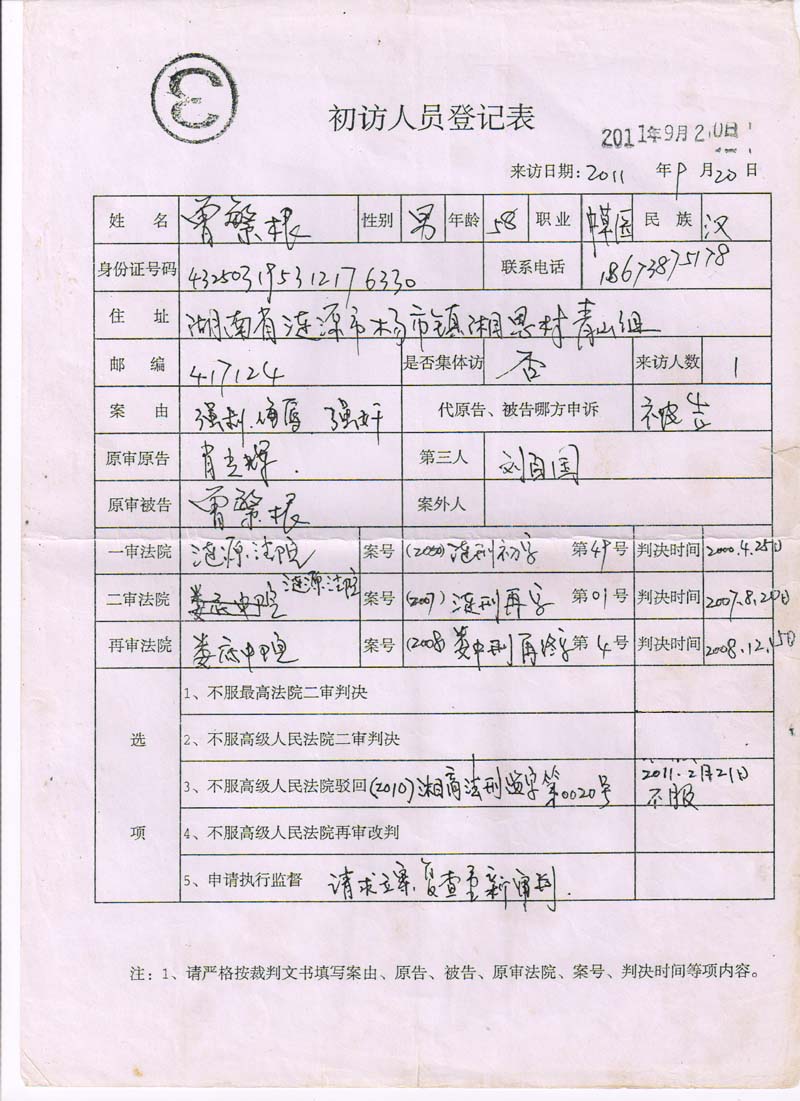 初访人员登记表
2011年9月20日
来访日期：2011 年 9 月 20 日
姓 名 曾繁根 性别 男 年龄 58 职业 民族 汉
身份证号码 432503195312176330 联系电话 18673875178
住 址 湖南省涟源市杨市镇湘思村青山组
邮 编 417124 是否集体访 否 来访人数 1
案 由 强制侮辱 强奸 代原告、被告哪方申诉 被告
原审原告 肖 辉. 第三人 刘百国
原审被告 曾繁根 案外人
一审法院 涟源法院 案号 (2000)涟刑初字 第49号 判决时间 2000.4.25日
二审法院 娄底中院 涟源法院 案号 (2007)涟刑再字 第01号 判决时间 2007.8.20日
再审法院 娄底中院 案号 (2008)娄中刑再终字 第4号 判决时间 2008.12.15日
选项
1、不服最高法院二审判决
2、不服高级人民法院二审判决
3、不服高级人民法院驳回(2010)湘高法刑监字第0020号 2011.2月21日 不服
4、不服高级人民法院再审改判
5、申请执行监督 请求立案,复查重新审判.
注：1、请严格按裁判文书填写案由、原告、被告、原审法院、案号、判决时间等项内容。